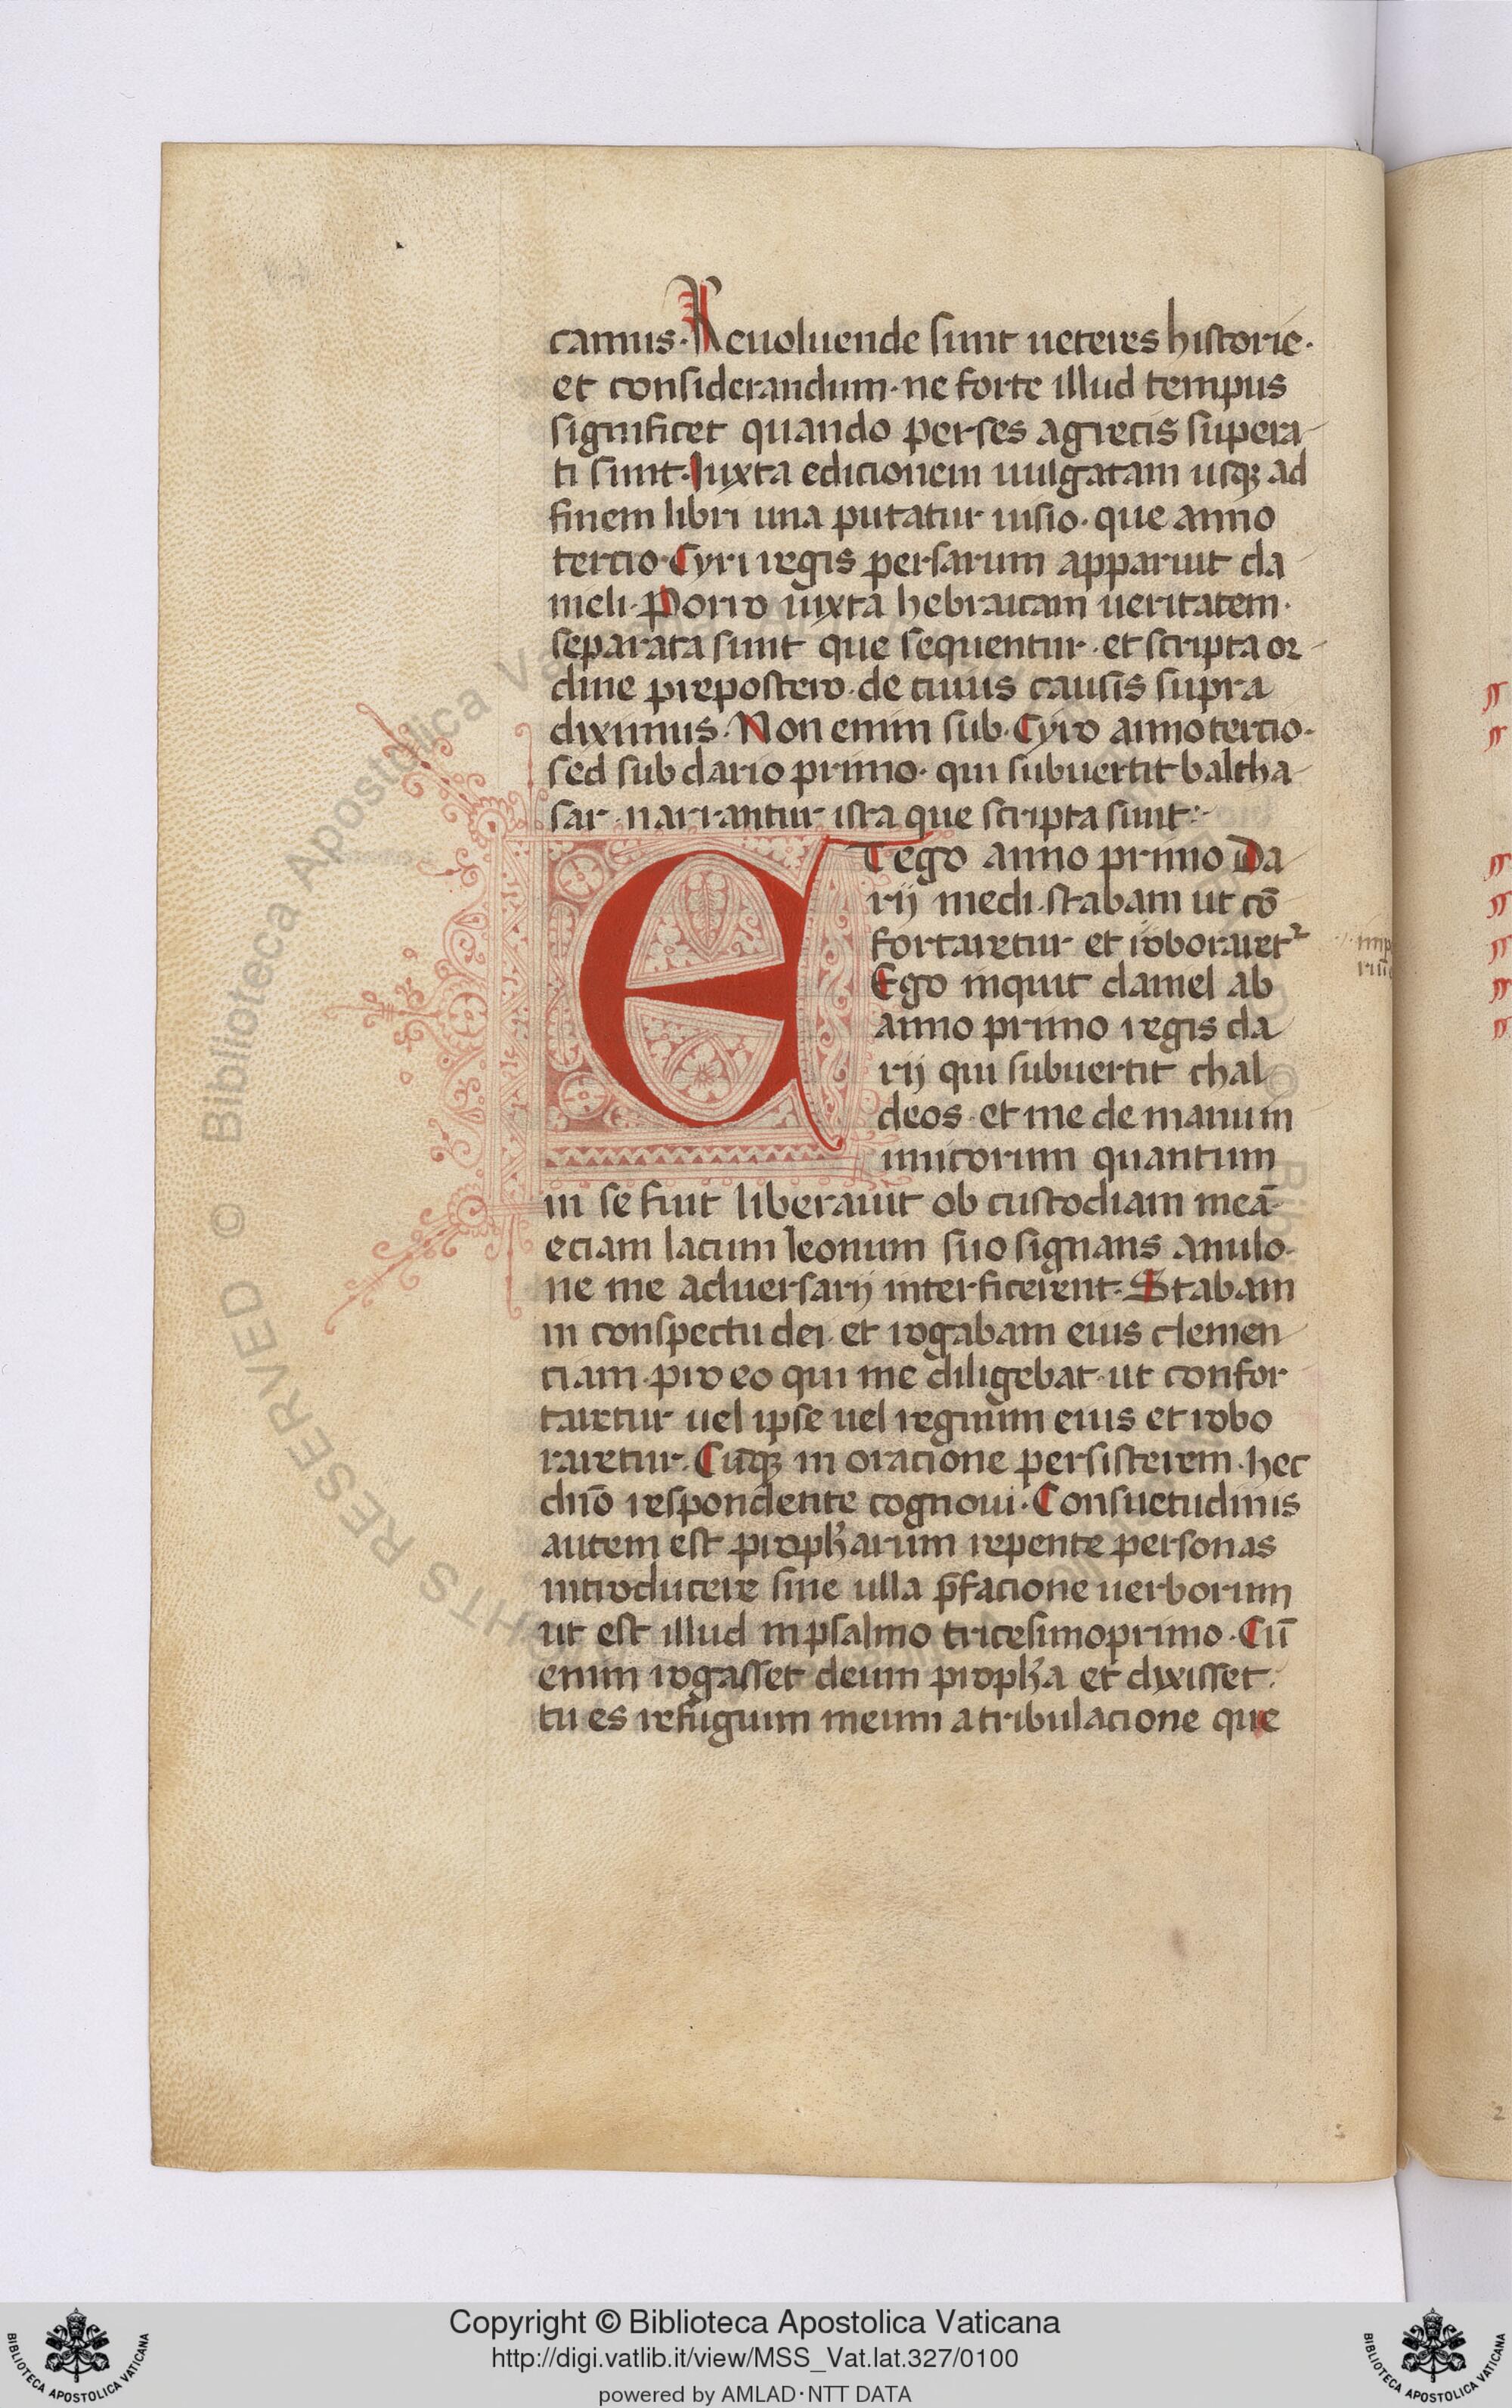 camus. Reuoluende sunt ueteres historie.
et considerandum. ne forte illud tempus
significet quando perses agrecis supera
ti sunt. Iuxta edicionem uulgatam usq₃ ad
finem libri una putatur uisio. que anno
tercio. Cyri regis persarum apparuit da
nieli. Porro iuxta hebraicam ueritatem.
separata sunt que sequentur. et scripta or
dine prepostero. de cuius causis supra
diximus. Non enim sub. Cyro anno tercio.
sed sub dario primo. qui subuertit baltha
sar. narrantur ista que scripta sunt:
ET ego anno primo Da
rij medi. stabam ut cō
fortaretur et roboraret²
Ego inquit daniel ab
anno primo regis da
rij qui subuertit chal
deos. et me de manu in
imicorum quantum
in se fuit liberauit ob custodiam meā
eciam lacum leonum suo signans anulo.
ne me aduersarij interficerent. Stabam
in conspectu dei. et rogabam eius clemen
ciam. pro eo qui me diligebat. ut confor
taretur uel ipse uel regnum eius et robo
raretur. Cūq₃ in oracione persisterem. hec
dn̄o respondente cognoui. Consuetudinis
autem est propharum repente personas
introducere sine ulla p̄facione uerborum
ut est illud in psalmo tricesimoprimo. Cū
enim rogasset deum propha et dixisset.
tu es refugium meum a tribulacione que
Copyright © Biblioteca Apostolica Vaticana
http://digi.vatlib.it/view/MSS_Vat.lat.327/0100
powered by AMLAD·NTT DATA
BIBLIOTECA APOSTOLICA VATICANA
BIBLIOTECA APOSTOLICA VATICANA